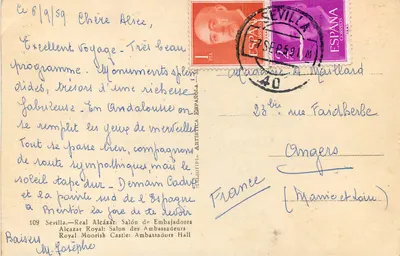 Ce 8/9/59 Chère Alice,
Excellent voyage - Très beau
programme. Monuments splen
dides, trésors d'une richesse
fabuleuse - En Andalousie on
se remplit les yeux de merveilles
Tout se passe bien, compagnons
de route sympathiques, mais le
soleil tape dur - Demain Cadix
et la pointe sud de l'Espagne
à Bientôt la joie de te revoir
Baisers
M. Josèphe
109 Sevilla.—Real Alcázar: Salón de Embajadores
Alcazar Royal: Salon des Ambassadeurs
Royal Moorish Castle: Ambassadors Hall
ARTISTICA ESPAÑOLA
1 PTA
ESPAÑA
CORREOS
SEVILLA
SEP.59
40
Madame de Maillard
23 bis rue Faidherbe
Angers
(Maine et Loire)
France